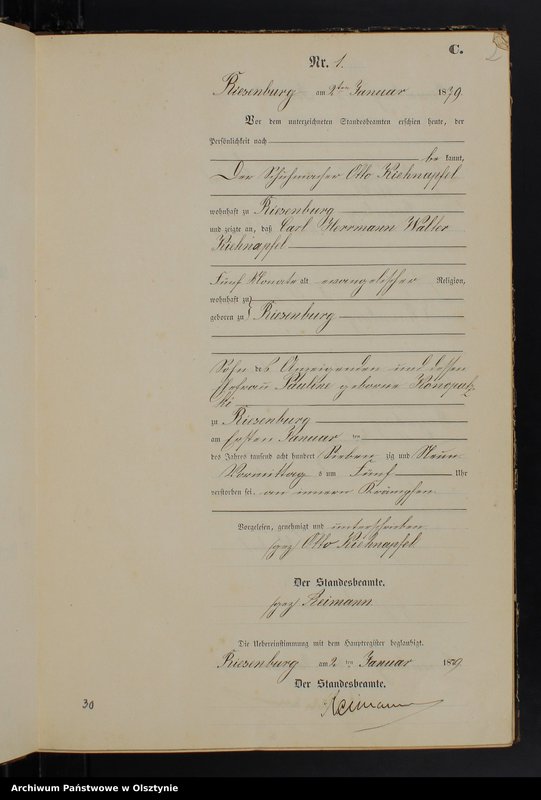 C.
2
Nr. 1.
Riesenburg am 2ten Januar 1879
Vor dem unterzeichneten Standesbeamten erschien heute, der
Persönlichkeit nach
be kannt,
Der Schuhmacher Otto Kiehnapfel
wohnhaft zu Riesenburg
und zeigte an, daß Carl Herrmann Walter
Kiehnapfel
Fünf Monate alt evangelischer Religion,
wohnhaft zu
geboren zu Riesenburg
Sohn des Anzeigenden und dessen
Ehefrau Pauline geborne Konopatz
ki
zu Riesenburg
am ersten Januar ten
des Jahres tausend acht hundert Sieben zig und Neun
Vormittag s um Fünf Uhr
verstorben sei. an innern Krämpfen
Vorgelesen, genehmigt und unterschrieben
gez. Otto Kiehnapfel
Der Standesbeamte.
gez. Reimann
Die Uebereinstimmung mit dem Hauptregister beglaubigt.
Riesenburg am 2 ten Januar 1879
Der Standesbeamte.
Reimann
30
Archiwum Państwowe w Olsztynie